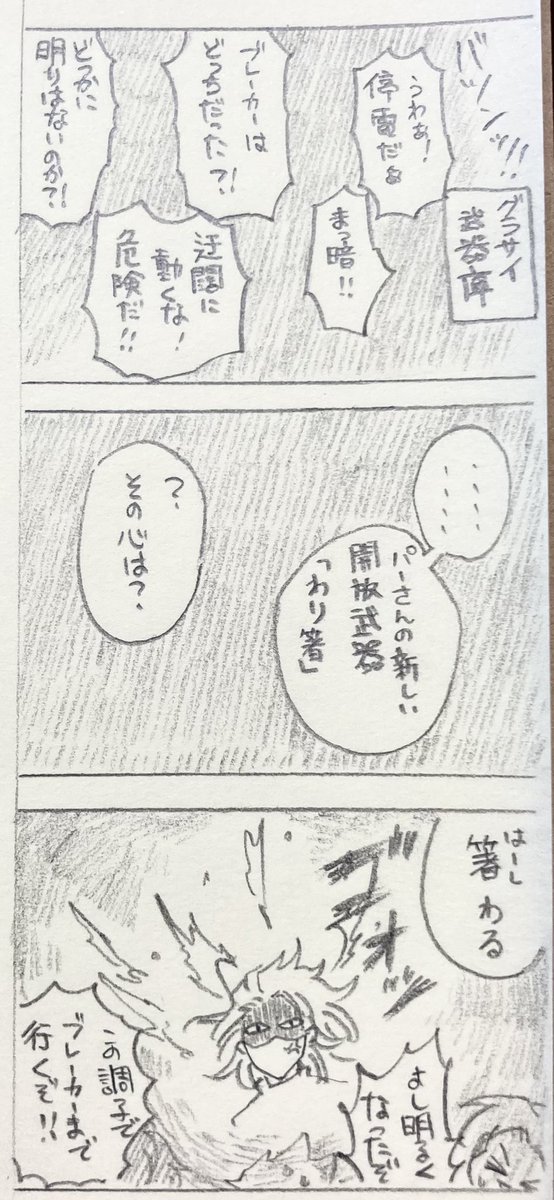 バッツンッ!!
グラサイ
武器庫
うわぁ!
停電だぁ
まっ暗!!
ブレーカーは
どっちだった?!
迂闊に
動くな!
危険だ!!
どっかに
明りはないのか?!
・・・・
・・・・
パーさんの新しい
開放武器
「わり箸」
?
その心は?
はーし
箸わる
ゴオッ
よし明るく
なったぞ
この調子で
ブレーカーまで
行くぞ!!